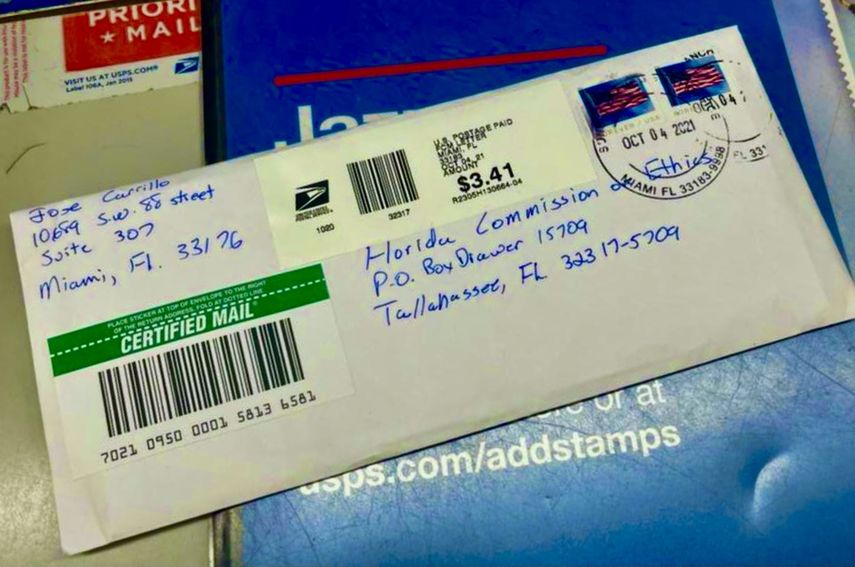 PRIORI
★ MAIL
VISIT US AT USPS.COM®
Label 106A, Jan 2015
U.S. POSTAGE PAID
FCM LETTER
MIAMI, FL
33183
OCT 04, 21
AMOUNT
$3.41
R2305H130664-04
UNITED STATES
POSTAL SERVICE®
1020
32317
FOREVER / USA
OCT 04 2021
OCT 04
MIAMI FL 33183-9998
FL 331
Jose Carrillo
10689 S.W. 88 street
Suite 307
Miami, FL. 33176
Florida Commission on Ethics
P.O. Box Drawer 15709
Tallahassee, FL 32317-5709
PLACE STICKER AT TOP OF ENVELOPE TO THE RIGHT
OF THE RETURN ADDRESS, FOLD AT DOTTED LINE
CERTIFIED MAIL®
7021 0950 0001 5813 6581
or at
usps.com/addstamps